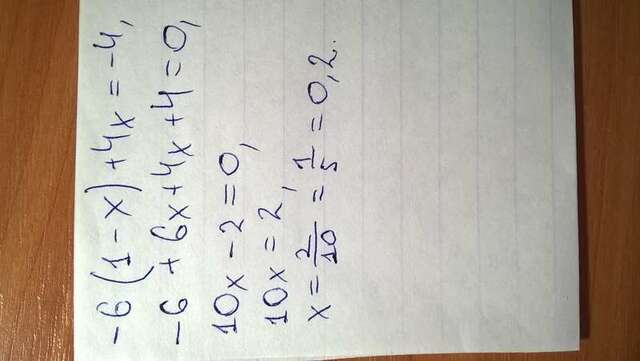 -6(1-x)+4x=-4,
-6+6x+4x+4=0,
10x-2=0,
10x=2,
x=2/10=1/5=0,2.